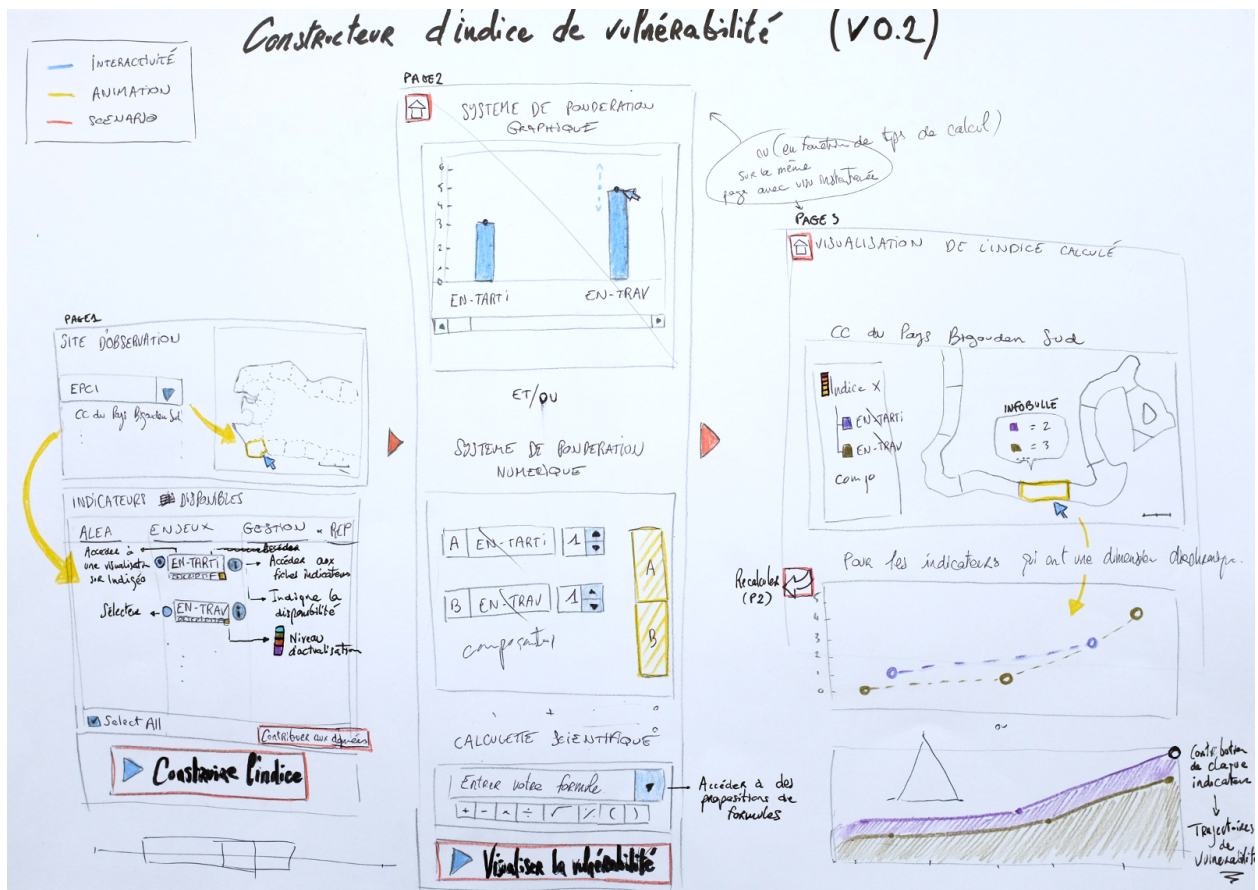 Constructeur d'indice de vulnérabilité (V0.2)
INTERACTIVITÉ
ANIMATION
SCENARIO
PAGE1
SITE D'OBSERVATION
EPCI
CC du Pays Bigouden Sud
INDICATEURS DISPONIBLES
ALEA ENJEUX GESTION REP
Accéder à
une visualisation
sur Indigéo
EN-TARTi
i
Accéder aux
fiches indicateurs
Indique la
disponibilité
Sélecter
EN-TRAV
i
Niveau
d'actualisation
Select All
Contribuer aux données
Construire l'indice
PAGE2
SYSTEME DE PONDERATION
GRAPHIQUE
6
5
4
3
2
1
0
EN-TARTi EN-TRAV
ET/OU
SYSTEME DE PONDERATION
NUMERIQUE
A EN-TARTi 1
B EN-TRAV 1
A
B
+
CALCULETTE SCIENTIFIQUE
Entrer votre formule
+ - × ÷ √ % ( )
Accéder à des
propositions de
formules
Visualiser la vulnérabilité
ou (en fonction de tps de calcul)
sur la même
page avec visu instantanée
PAGE 3
VISUALISATION DE L'INDICE CALCULÉ
CC du Pays Bigouden Sud
Indice X
EN-TARTi
EN-TRAV
compo
INFOBULLE
= 2
= 3
Pour les indicateurs qui ont une dimension diachronique.
Recalculer
(P2)
4
3
2
1
0
ou
Contribution
de chaque
indicateur
TRAJECTOIRES
de
vulnérabilité